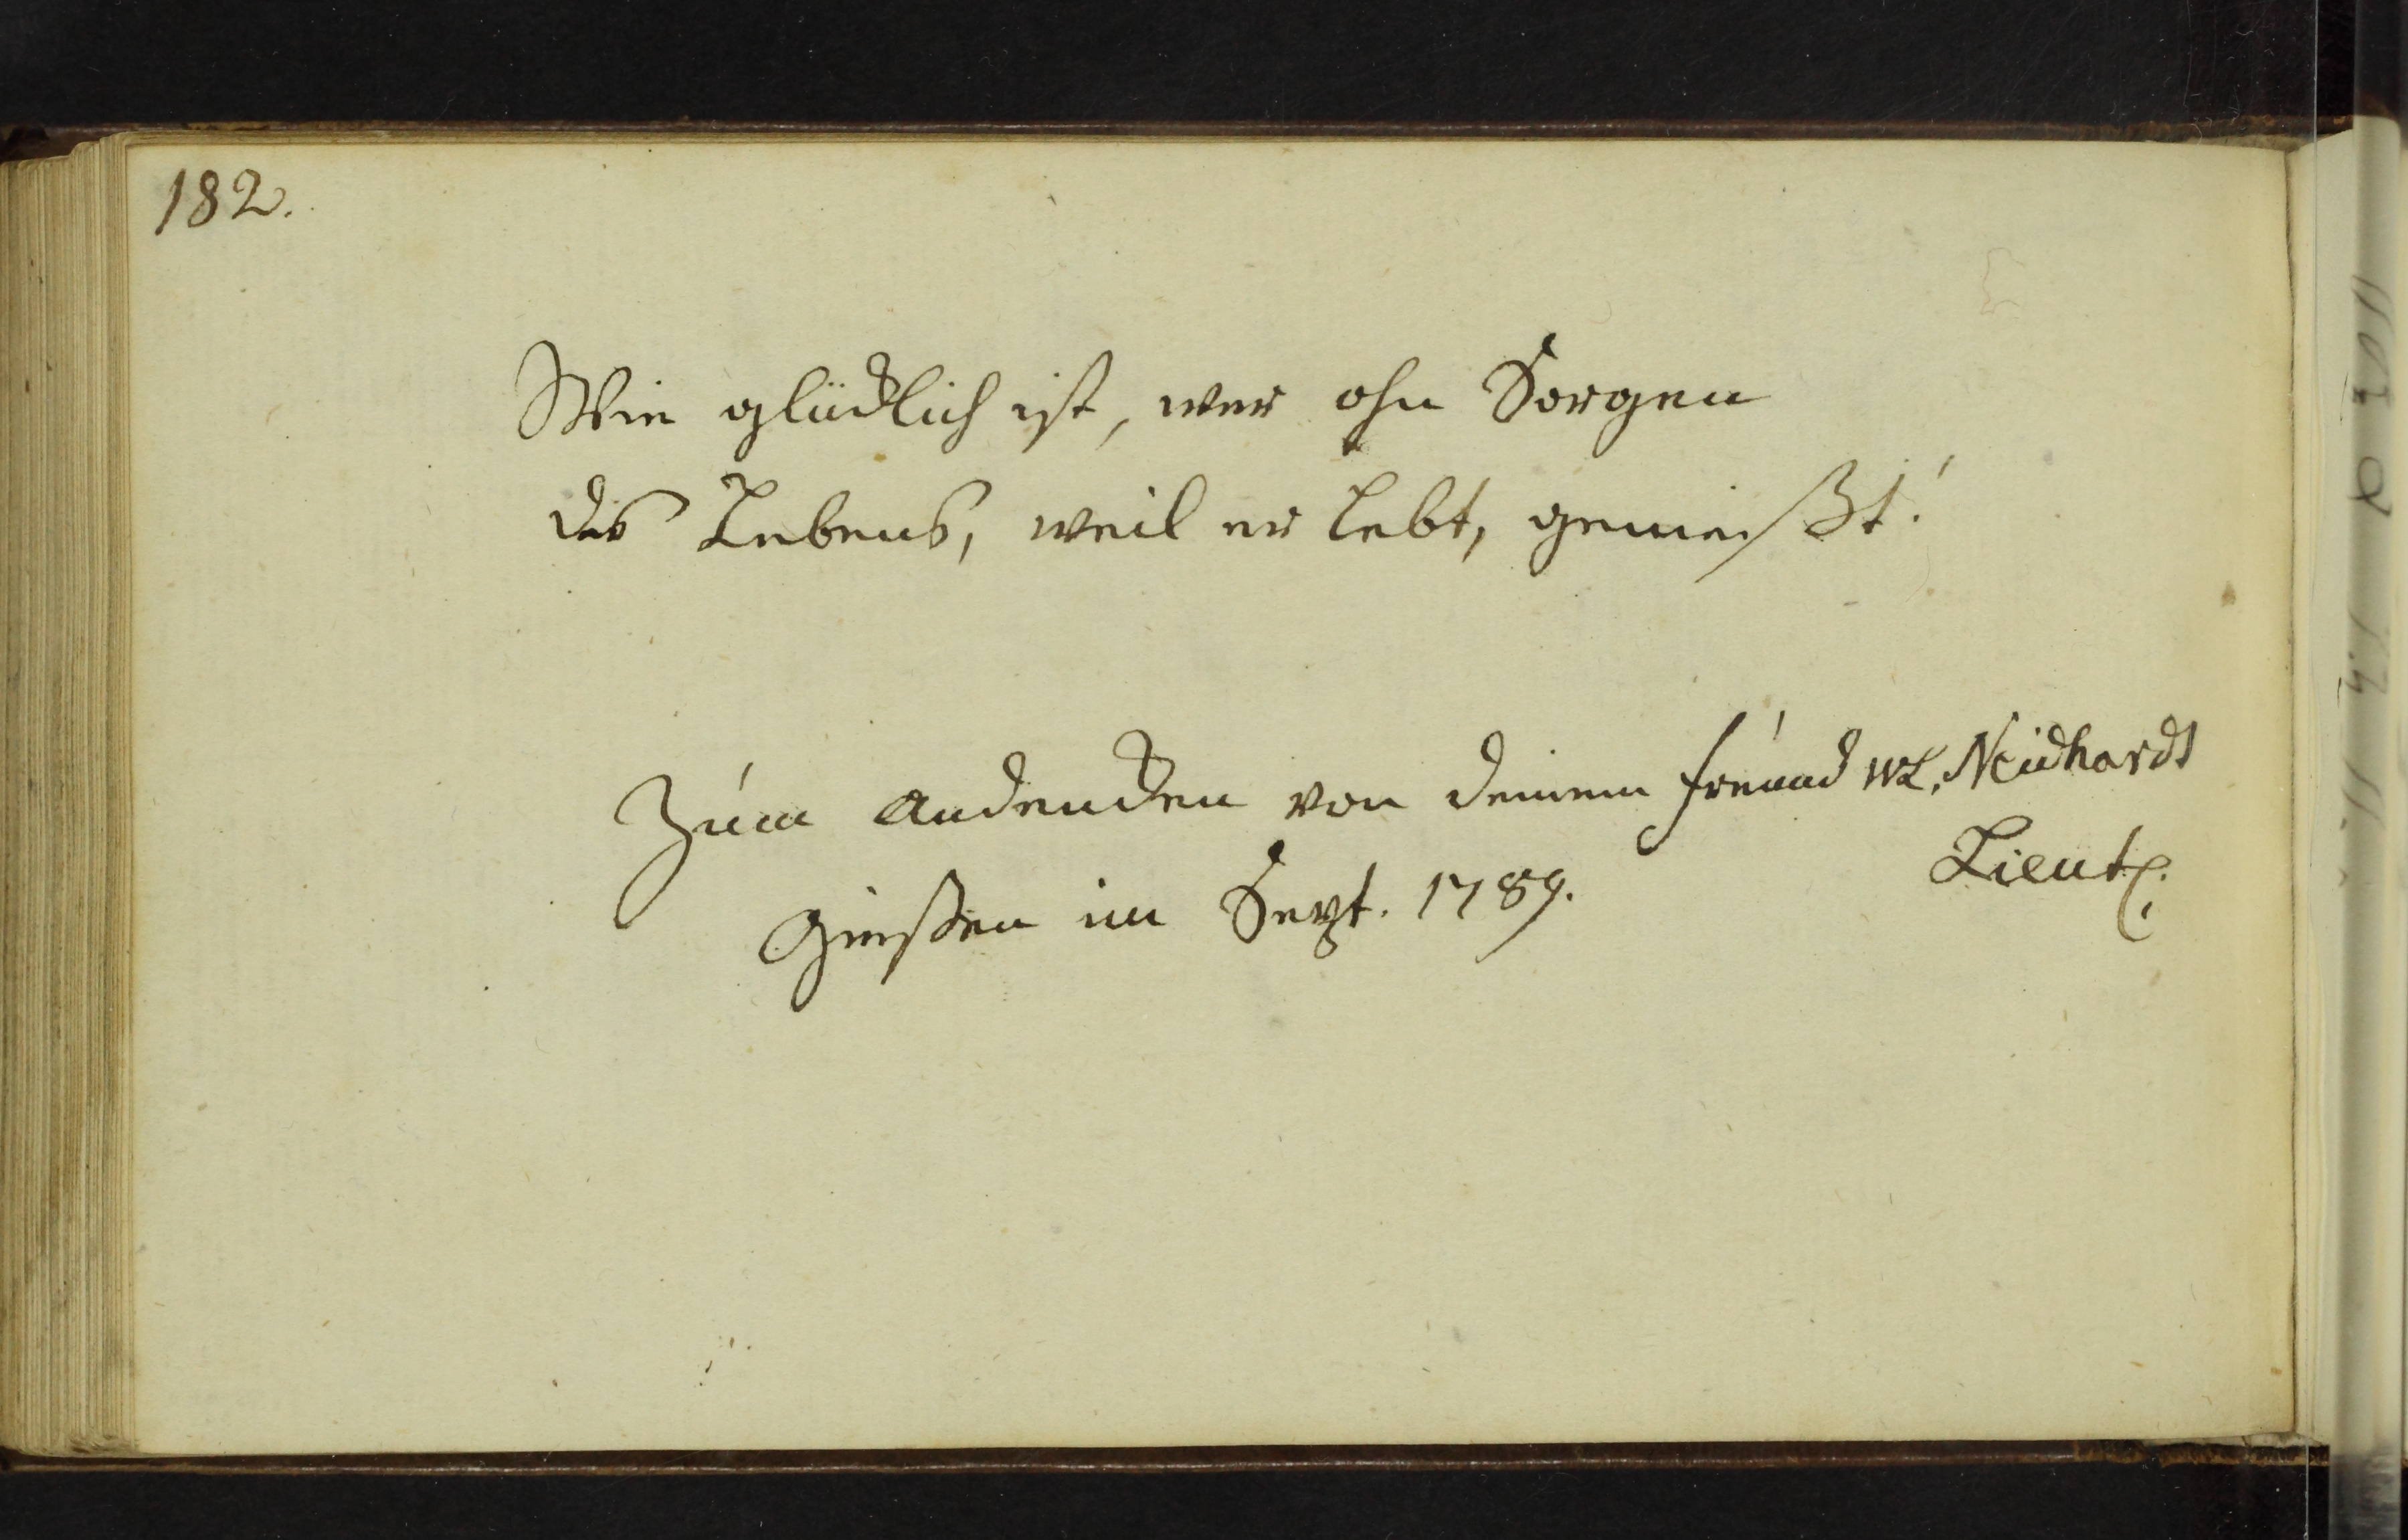 182.
Wie glücklich ist, wer ohn Sorgen
des Lebens, weil er lebt, genießt!
Zum andencken von deinem freund WL. Neidhardt
Lieut.
Giessen im Sept. 1789.